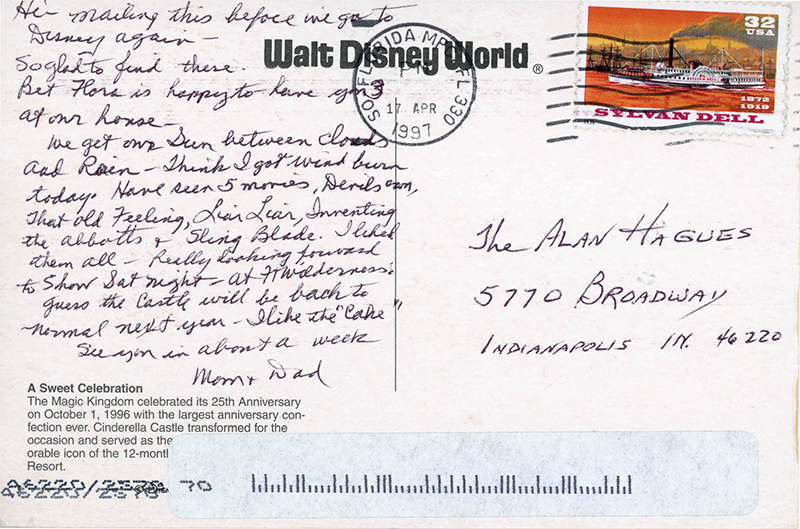 Hi - mailing this before we go to
Disney again -
So glad to find these.
Bet Flora is happy to have you 3
at our house
We get our Sun between clouds
and Rain - Think I got wind burn
today. Have seen 5 movies, Devils own,
That old Feeling, Liar Liar, Inventing
the abbotts & Sling Blade. I liked
them all - Really looking forward
to Show Sat night - at Ft Wilderness.
guess the Castle will be back to
normal next year - I like the "Cake"
See you in about a week
Mom & Dad
A Sweet Celebration
The Magic Kingdom celebrated its 25th Anniversary
on October 1, 1996 with the largest anniversary con-
fection ever. Cinderella Castle transformed for the
occasion and served as the
orable icon of the 12-month
Resort.
46220/2578 70
Walt Disney World®
SO. FLORIDA MPC FL 330
PM
17 APR
1997
32
USA
1872
1919
SYLVAN DELL
The ALAN HAGUES
5770 BROADWAY
INDIANAPOLIS IN. 46220